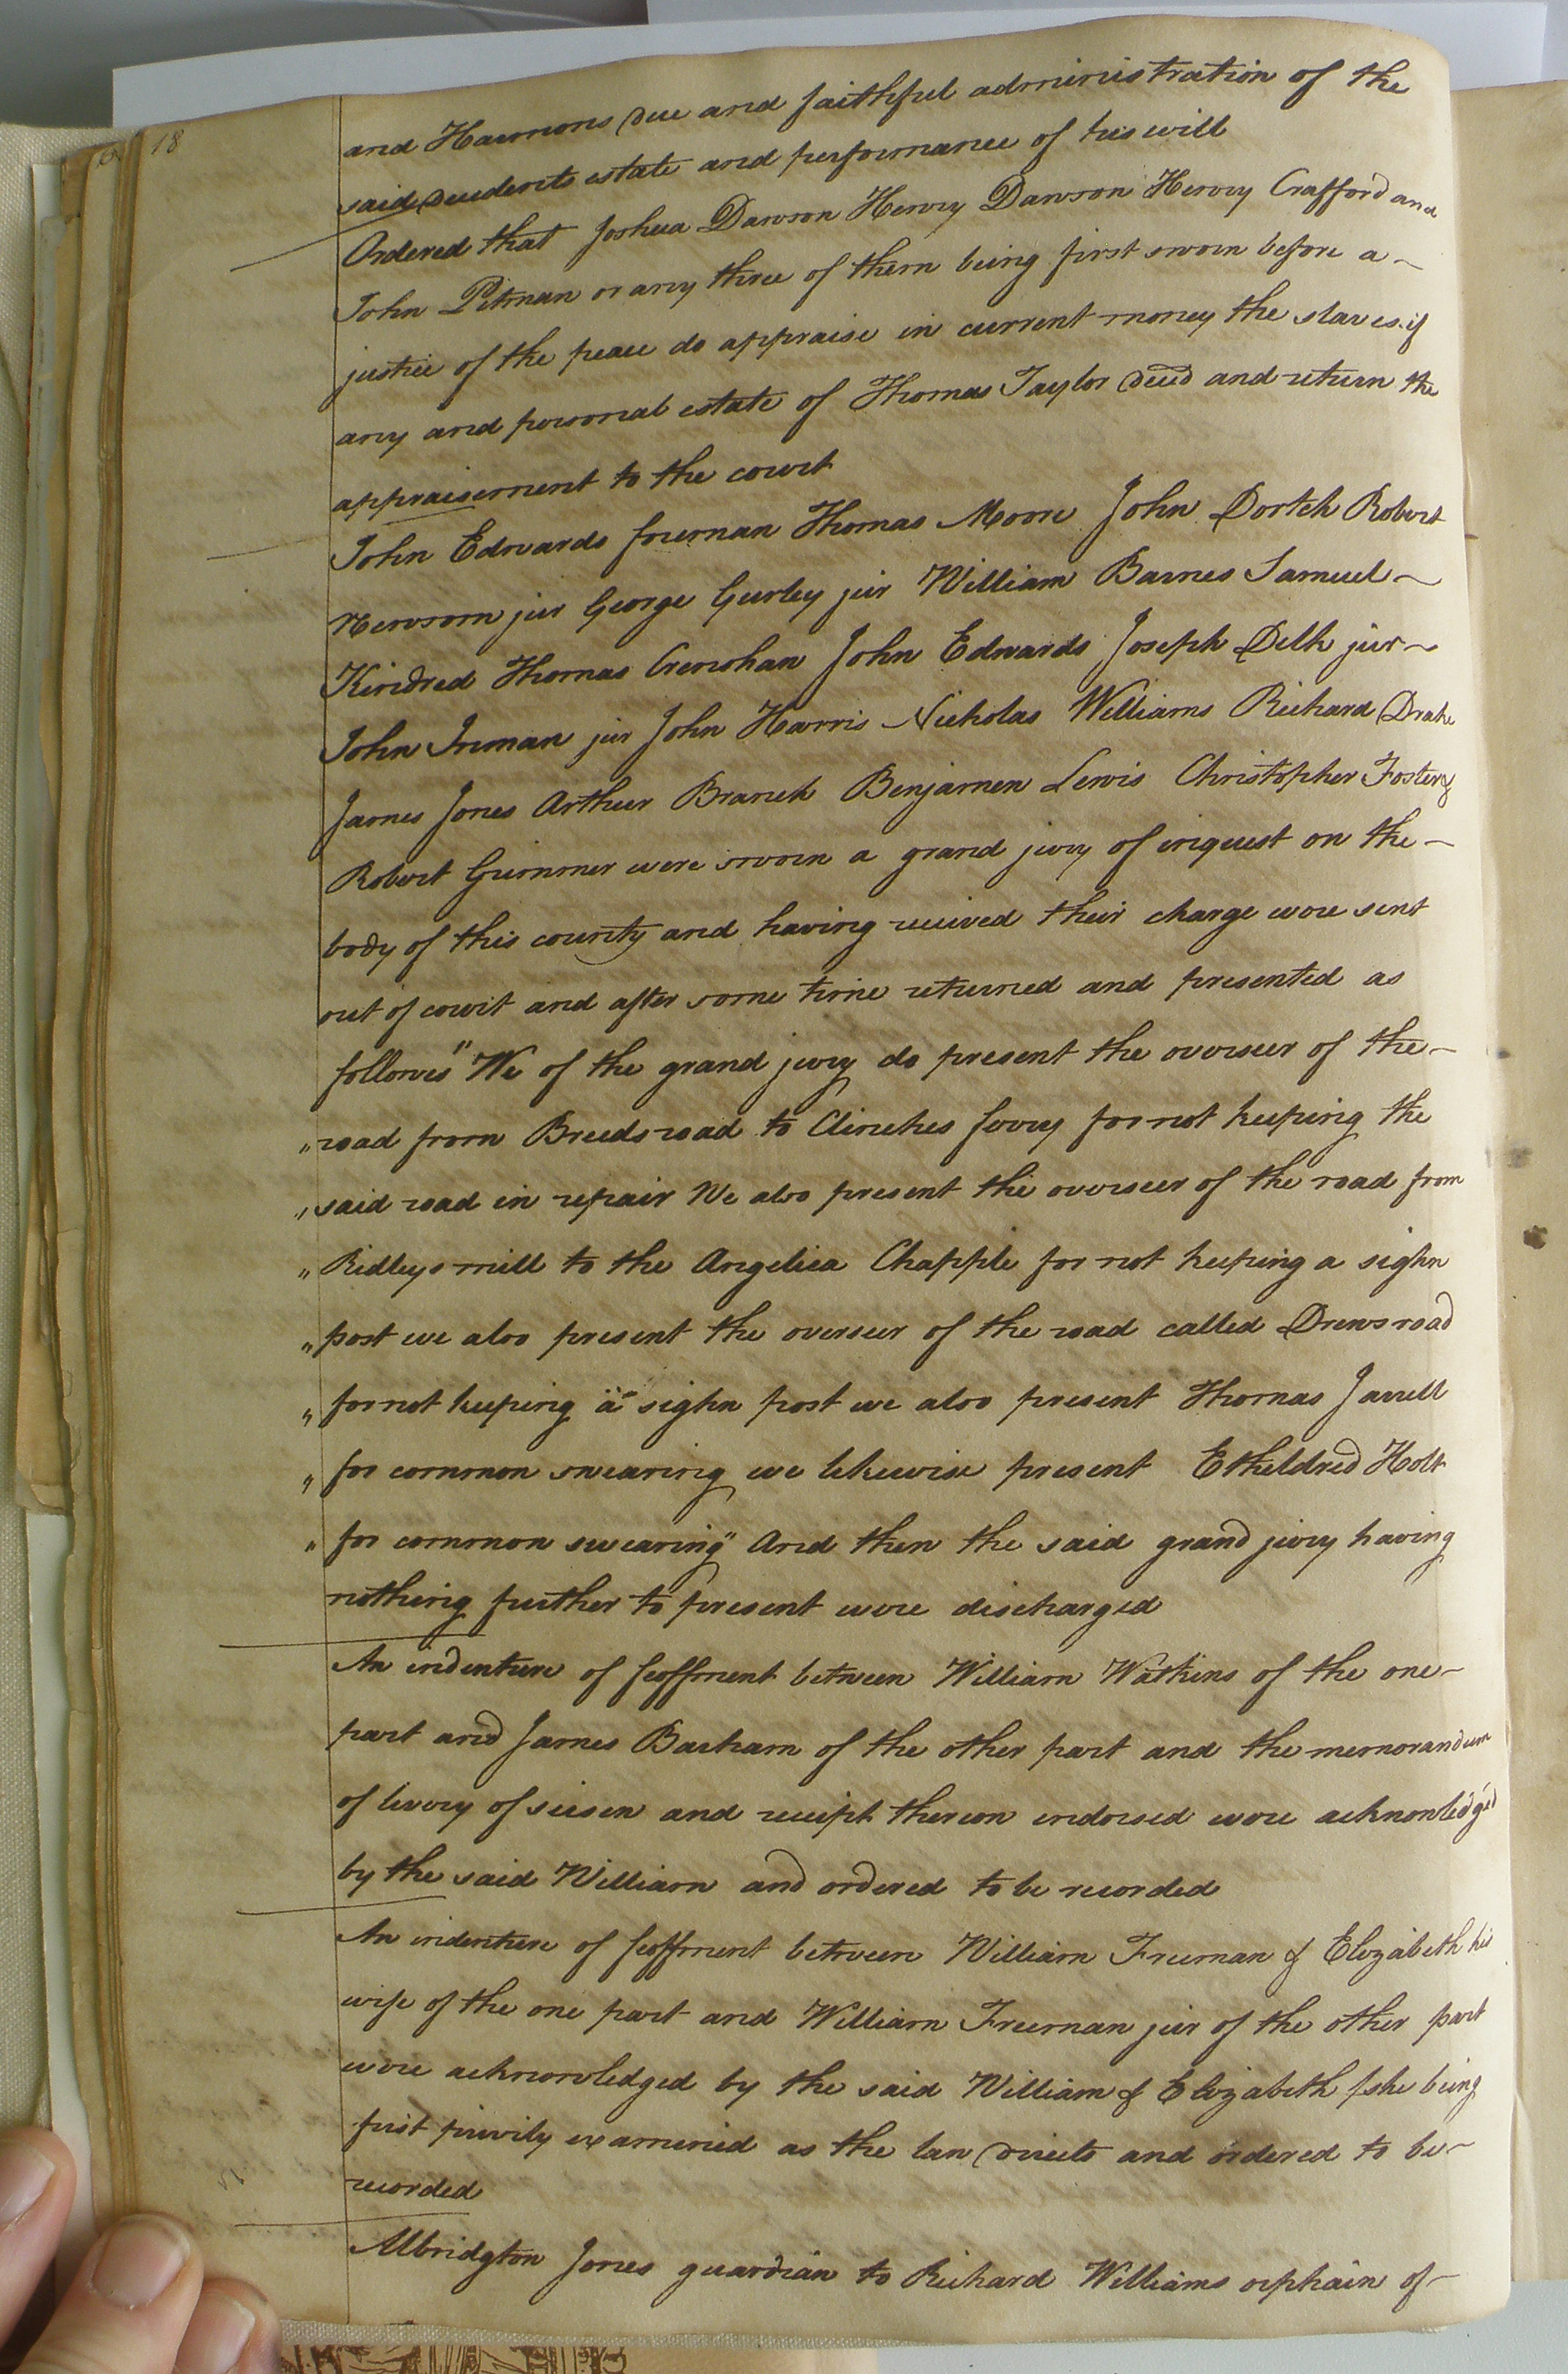 18
and Harmons due and faithful administration of the
said decedents estate and performance of his will
Ordered that Joshua Dawson Henry Dawson Henry Crafford and
John Pitman or any three of them being first sworn before a
justice of the peace do appraise in current money the slaves if
any and personal estate of Thomas Taylor decd and return the
appraisement to the court
John Edwards foreman Thomas Moore John Dortch Robert
Newsom jur George Gurley jur William Barnes Samuel
Kindred Thomas Crenshan John Edwards Joseph Delk jur
John Inman jur John Harris Nicholas Williams Richard Drake
James Jones Arthur Branch Benjamen Lewis Christopher Foster &
Robert Grimmer were sworn a grand jury of inquest on the
body of this county and having received their charge were sent
out of court and after some time returned and presented as
follows "We of the grand jury do present the overseer of the
" road from Breeds road to Clinches ferry for not keeping the
" said road in repair We also present the overseer of the road from
" Ridleys mill to the Angelica Chapple for not keeping a sighn
" post we also present the overseer of the road called Drews road
" for not keeping a sighn post we also present Thomas Jarrell
" for common swearing we likewise present Etheldred Holt
" for common swearing" And then the said grand jury having
nothing further to present were discharged
An indenture of feoffment between William Watkins of the one
part and James Barham of the other part and the memorandum
of livery of seisen and receipt thereon endorsed were acknowledg'd
by the said William and ordered to be recorded
An indenture of feoffment between William Freeman & Elizabeth his
wife of the one part and William Freeman jur of the other part
were acknowledged by the said William & Elizabeth she being
first privily examined as the law directs and ordered to be
recorded
Albridgton Jones guardian to Richard Williams orphain of